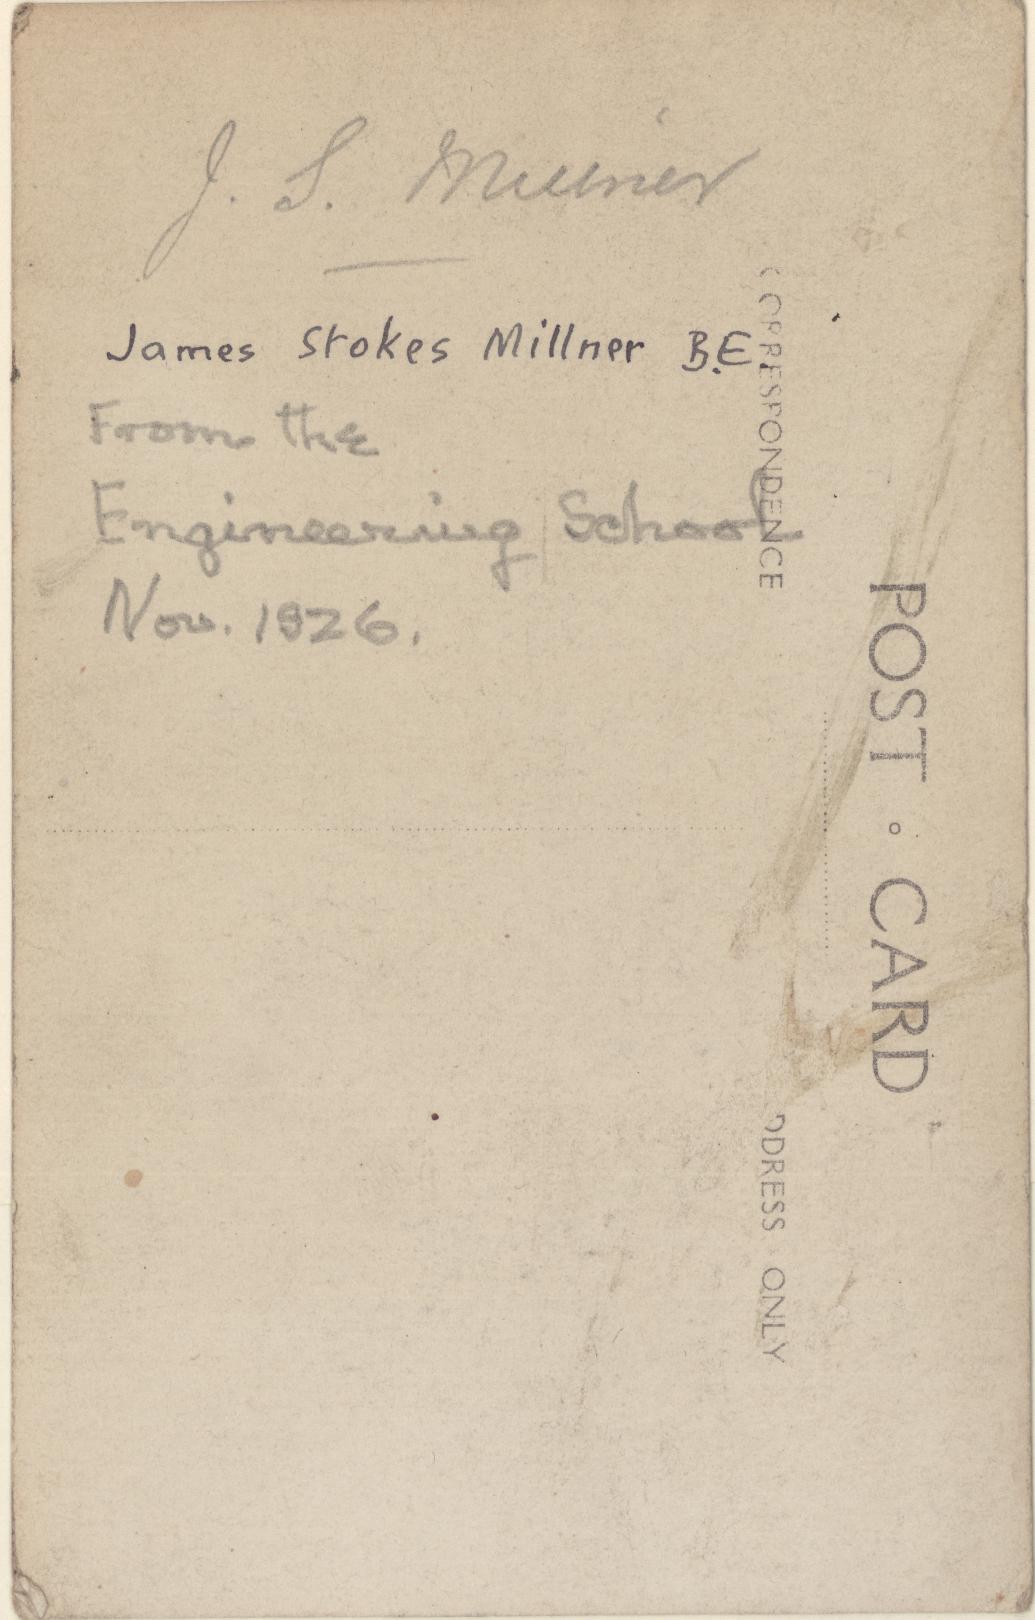 J. S. Millner
James Stokes Millner B.E.
From the
Engineering School
Nov. 1926.
CORRESPONDENCE
POST CARD
DDRESS ONLY